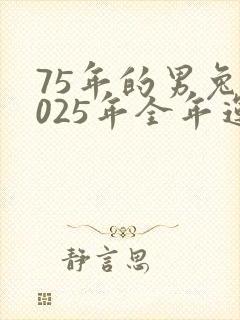 75年的男兔
025年全年运
静言思